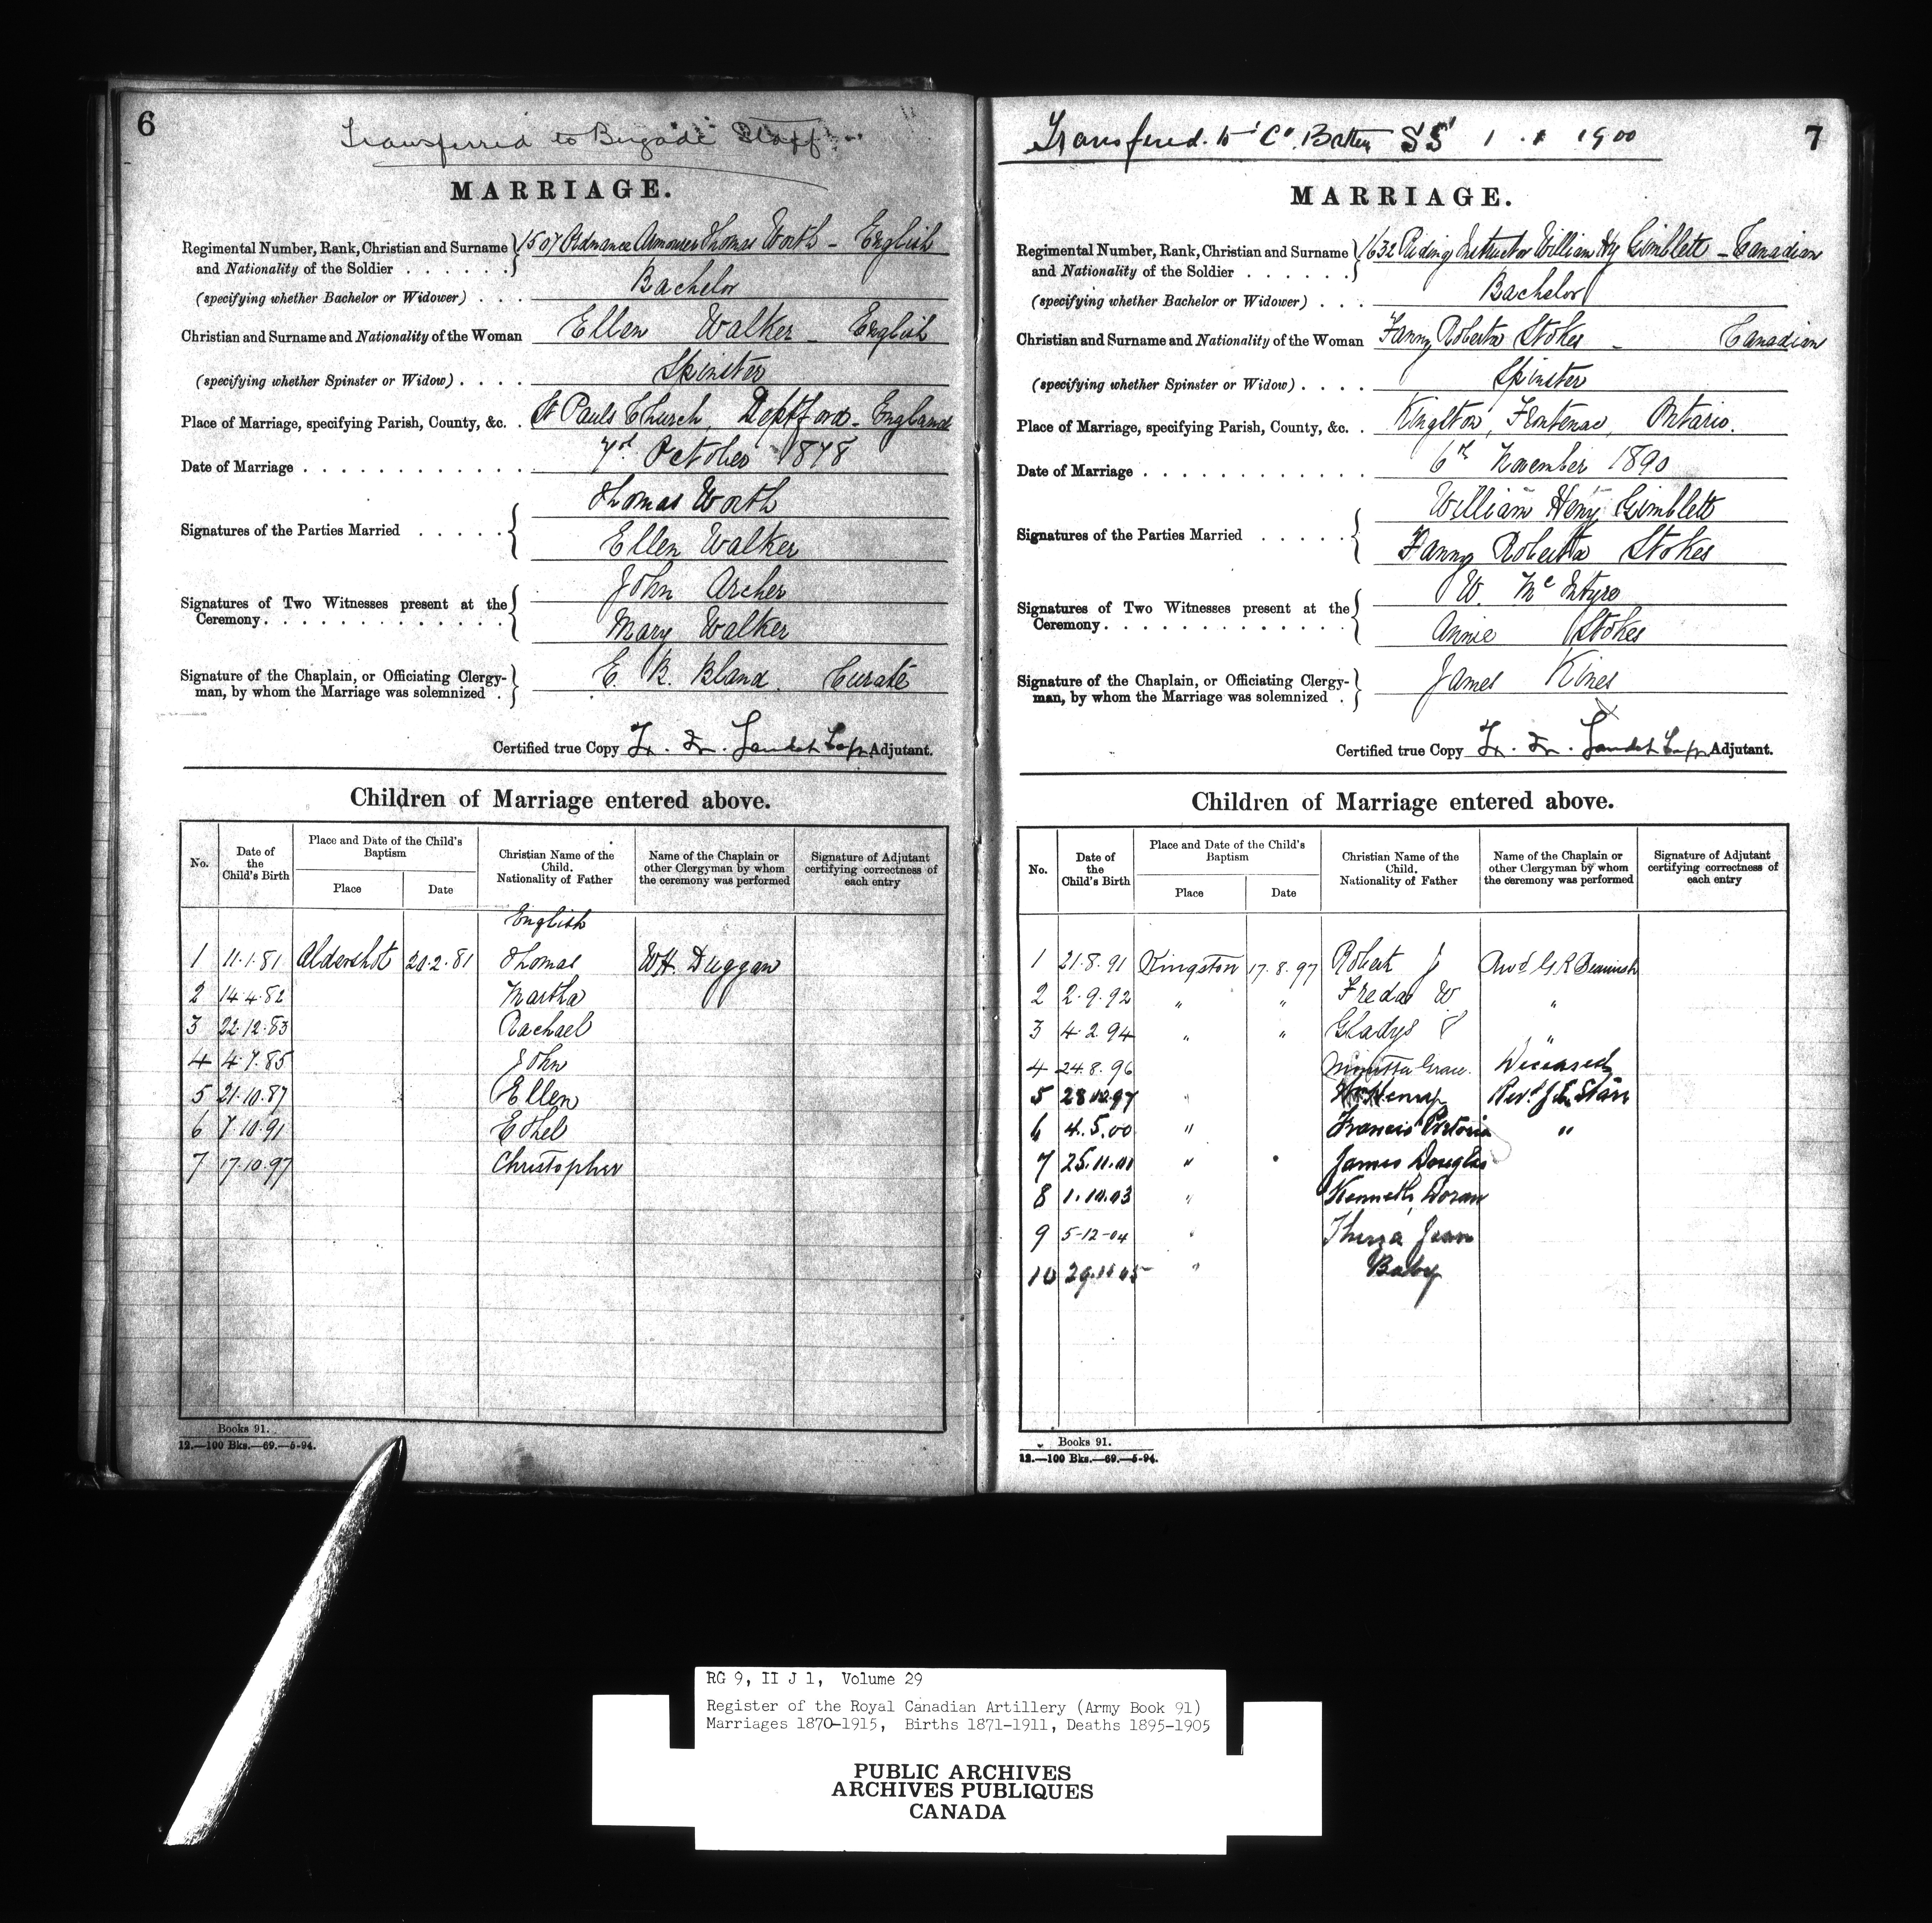 6
Transferred to Brigade Staff
MARRIAGE.
Regimental Number, Rank, Christian and Surname and Nationality of the Soldier . . . . . . 1507 Ordnance Armourer Thomas Worth - English
(specifying whether Bachelor or Widower) . . . Bachelor
Christian and Surname and Nationality of the Woman Ellen Walker - English
(specifying whether Spinster or Widow) . . . . Spinster
Place of Marriage, specifying Parish, County, &c. . St Pauls Church, Deptford - England
Date of Marriage . . . . . . . . . . . . October 1878
Signatures of the Parties Married . . . . . Thomas Worth
Ellen Walker
Signatures of Two Witnesses present at the Ceremony. . . . . . . . . . . . . John Archer
Mary Walker
Signature of the Chaplain, or Officiating Clergyman, by whom the Marriage was solemnized . E. B. Bland. Curate
Certified true Copy Adjutant.
Children of Marriage entered above.
No.
Date of the Child's Birth
Place and Date of the Child's Baptism
Place
Date
Christian Name of the Child. Nationality of Father
Name of the Chaplain or other Clergyman by whom the ceremony was performed
Signature of Adjutant certifying correctness of each entry
English
1 11.1.81 Aldershot 20.2.81 Thomas WH Duggan
2 14.4.82 Martha
3 22.12.83 Rachael
4 4.7.85 John
5 21.10.87 Ellen
6 7.10.91 Ethel
7 17.10.97 Christopher
Books 91.
12.—100 Bks.—69.—5-94.
7
Transfered to 'C' Battery 1 . 1 1900
MARRIAGE.
Regimental Number, Rank, Christian and Surname and Nationality of the Soldier . . . . . . 1632 Riding Instructor William Hy Gimblett - Canadian
(specifying whether Bachelor or Widower) . . . Bachelor
Christian and Surname and Nationality of the Woman Fanny Roberta Stokes - Canadian
(specifying whether Spinster or Widow) . . . . Spinster
Place of Marriage, specifying Parish, County, &c. . Kingston, Frontenac, Ontario.
Date of Marriage . . . . . . . . . . . . 6th November 1890
Signatures of the Parties Married . . . . . William Henry Gimblett
Fanny Roberta Stokes
Signatures of Two Witnesses present at the Ceremony. . . . . . . . . . . . . W. McIntyre
Annie Stokes
Signature of the Chaplain, or Officiating Clergyman, by whom the Marriage was solemnized . James Kines
Certified true Copy Adjutant.
Children of Marriage entered above.
No.
Date of the Child's Birth
Place and Date of the Child's Baptism
Place
Date
Christian Name of the Child. Nationality of Father
Name of the Chaplain or other Clergyman by whom the ceremony was performed
Signature of Adjutant certifying correctness of each entry
1 21.8.91 Kingston 17.8.97 Robert J Revd G R Beamish
2 2.9.92 " " Freda W "
3 4.2.94 " " Gladys "
4 24.8.96 Grace. Deceased
5 28.10.97 " Henry Revd Starr
6 4.5.00 " Francis Pretoria "
7 25.11.01 " James Douglas
8 1.10.03 " Kenneth Doran
9 5-12-04 " Thirza Jean
10 " Baby
Books 91.
12.—100 Bks.—69.—5-94.
RG 9, II J 1, Volume 29
Register of the Royal Canadian Artillery (Army Book 91)
Marriages 1870-1915, Births 1871-1911, Deaths 1895-1905
PUBLIC ARCHIVES
ARCHIVES PUBLIQUES
CANADA